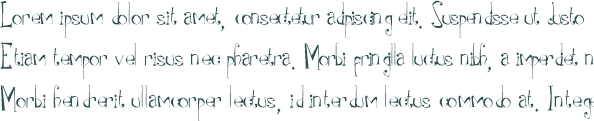 Lorem ipsum dolor sit amet, consectetur adpiscing elit. Suspendisse ut justo
Etiam tempor vel risus nec pharetra. Morbi fringilla luctus nibh, a imperdet n
Morbi hendrerit ullamcorper lectus, id interdum lectus commodo at. Integ